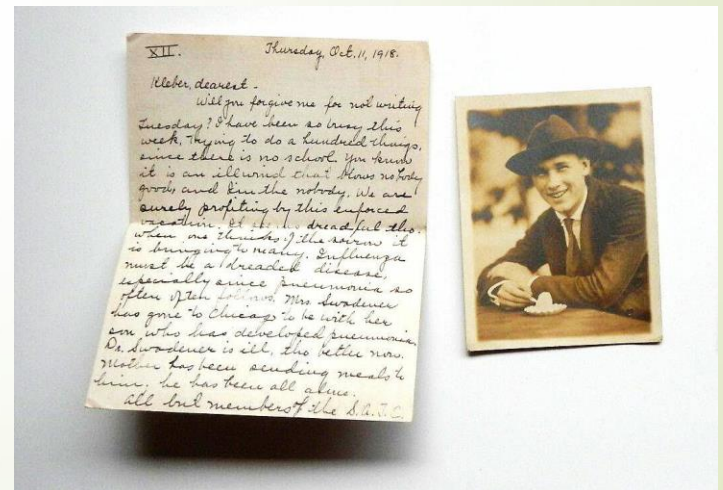 XII.
Thursday, Oct. 11, 1918.
Kleber, dearest -
Will you forgive me for not writing
Tuesday? I have been so busy this
week, trying to do a hundred things,
since there is no school. You know
it is an ill wind that blows nobody
good, and I'm the nobody. We are
surely profiting by this enforced
vacation. It seems dreadful tho.
when one thinks of the sorrow it
is bringing to many. Influenza
must be a dreaded disease,
especially since pneumonia so
often often follows. Mrs. Swadener
has gone to Chicago to be with her
son who has developed pneumonia.
Dr. Swadener is ill, tho better now.
Mother has been sending meals to
him; he has been all alone.
All but members of the S.A.T.C.